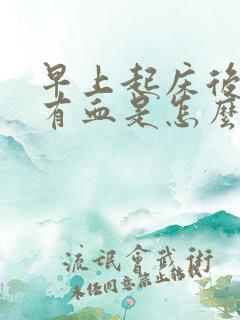 早上起床後
有血是怎麼
流氓會武術
未任同意禁止轉載